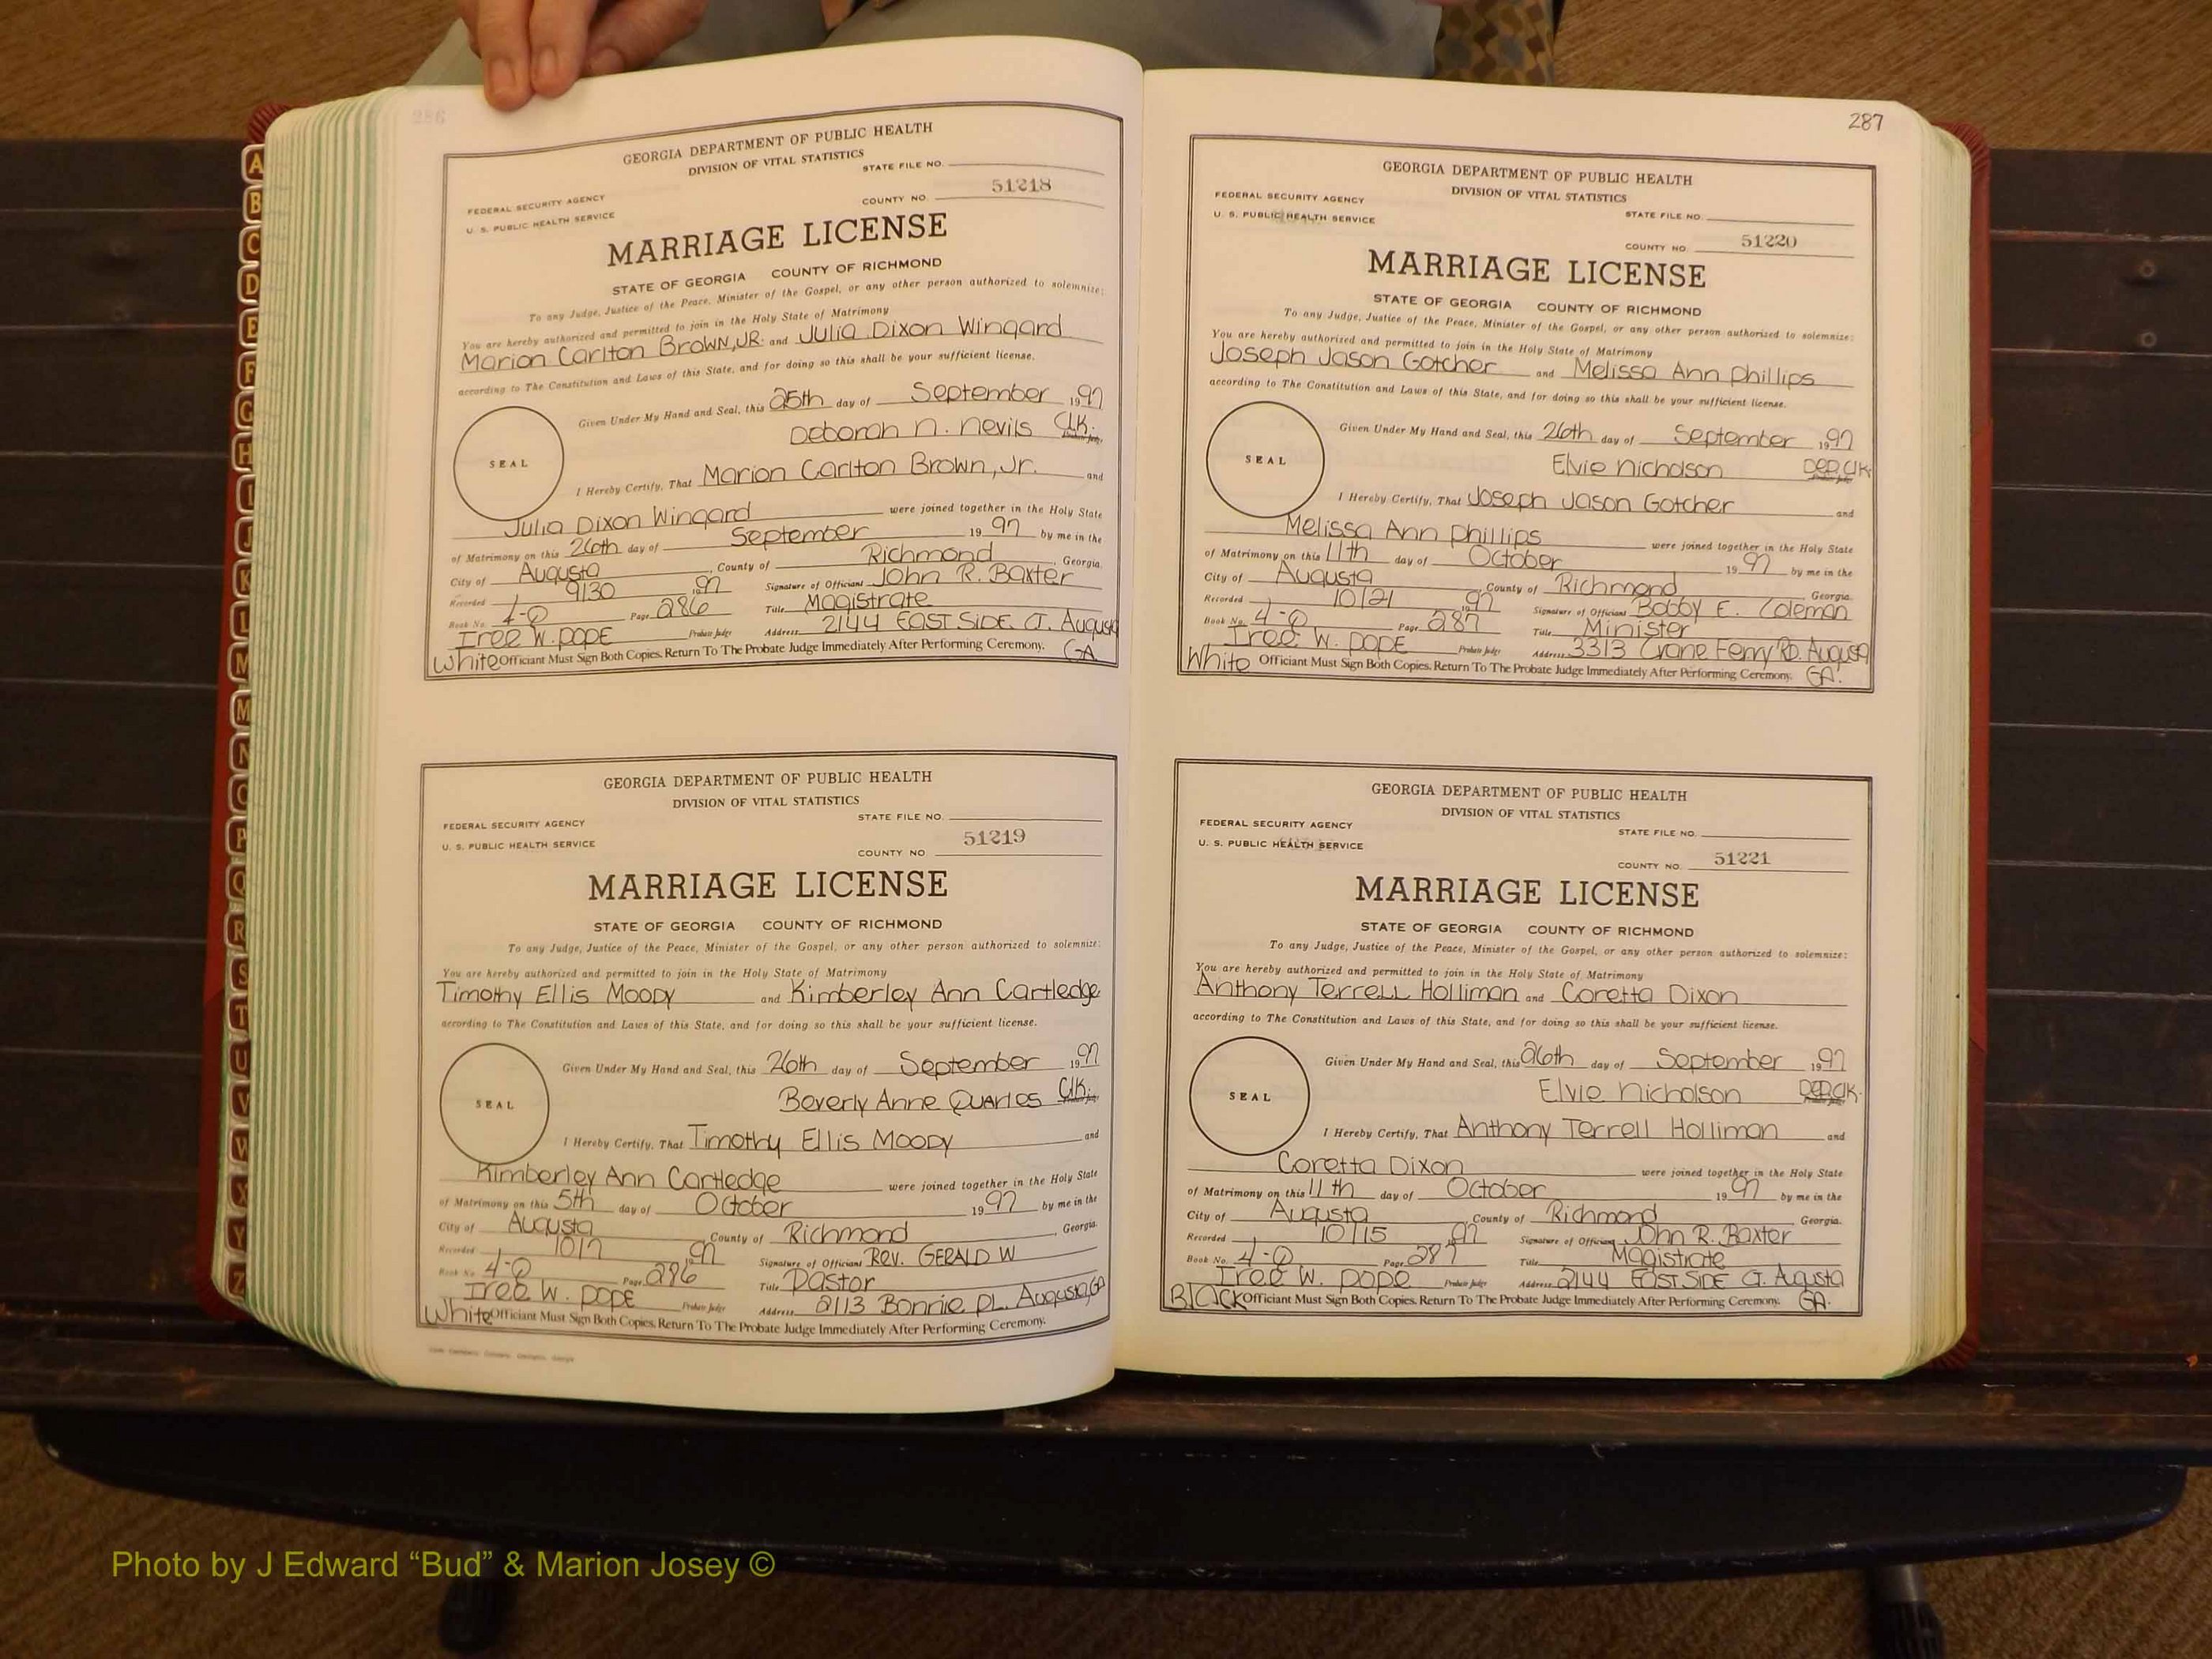 286
GEORGIA DEPARTMENT OF PUBLIC HEALTH
DIVISION OF VITAL STATISTICS
STATE FILE NO.
FEDERAL SECURITY AGENCY
U. S. PUBLIC HEALTH SERVICE
COUNTY NO. 51218
MARRIAGE LICENSE
STATE OF GEORGIA COUNTY OF RICHMOND
To any Judge, Justice of the Peace, Minister of the Gospel, or any other person authorized to solemnize:
You are hereby authorized and permitted to join in the Holy State of Matrimony
Marion Carlton Brown, JR. and Julia Dixon Wingard
according to The Constitution and Laws of this State, and for doing so this shall be your sufficient license.
Given Under My Hand and Seal, this 25th day of September 1997
Deborah N. Nevils Clk.
SEAL
I Hereby Certify, That Marion Carlton Brown, Jr. and
Julia Dixon Wingard were joined together in the Holy State
of Matrimony on this 26th day of September 1997 by me in the
City of Augusta, County of Richmond, Georgia.
Recorded 9/30 1997 Signature of Officiant John R. Baxter
Book No. 4-Q Page 286 Title Magistrate
Iree W. Pope Probate Judge Address 2144 East Side Ct. Augusta
White Officiant Must Sign Both Copies. Return To The Probate Judge Immediately After Performing Ceremony. GA
GEORGIA DEPARTMENT OF PUBLIC HEALTH
DIVISION OF VITAL STATISTICS
STATE FILE NO.
FEDERAL SECURITY AGENCY
U. S. PUBLIC HEALTH SERVICE
COUNTY NO. 51219
MARRIAGE LICENSE
STATE OF GEORGIA COUNTY OF RICHMOND
To any Judge, Justice of the Peace, Minister of the Gospel, or any other person authorized to solemnize:
You are hereby authorized and permitted to join in the Holy State of Matrimony
Timothy Ellis Moody and Kimberley Ann Cartledge
according to The Constitution and Laws of this State, and for doing so this shall be your sufficient license.
Given Under My Hand and Seal, this 26th day of September 1997
Beverly Anne Quarles Clk.
SEAL
I Hereby Certify, That Timothy Ellis Moody and
Kimberley Ann Cartledge were joined together in the Holy State
of Matrimony on this 5th day of October 1997 by me in the
City of Augusta, County of Richmond, Georgia.
Recorded 10/7 1997 Signature of Officiant Rev. Gerald W
Book No. 4-Q Page 286 Title Pastor
Iree W. Pope Probate Judge Address 2113 Bonnie Pl. Augusta, GA
White Officiant Must Sign Both Copies. Return To The Probate Judge Immediately After Performing Ceremony.
287
GEORGIA DEPARTMENT OF PUBLIC HEALTH
DIVISION OF VITAL STATISTICS
FEDERAL SECURITY AGENCY
U. S. PUBLIC HEALTH SERVICE
STATE FILE NO.
COUNTY NO. 51220
MARRIAGE LICENSE
STATE OF GEORGIA COUNTY OF RICHMOND
To any Judge, Justice of the Peace, Minister of the Gospel, or any other person authorized to solemnize:
You are hereby authorized and permitted to join in the Holy State of Matrimony
Joseph Jason Gotcher and Melissa Ann Phillips
according to The Constitution and Laws of this State, and for doing so this shall be your sufficient license.
Given Under My Hand and Seal, this 26th day of September 1997
Elvie Nicholson Dep. Clk.
SEAL
I Hereby Certify, That Joseph Jason Gotcher and
Melissa Ann Phillips were joined together in the Holy State
of Matrimony on this 11th day of October 1997 by me in the
City of Augusta, County of Richmond, Georgia.
Recorded 10/21 1997 Signature of Officiant Bobby E. Coleman
Book No. 4-Q Page 287 Title Minister
Iree W. Pope Probate Judge Address 3313 Crane Ferry Rd. Augusta
White Officiant Must Sign Both Copies. Return To The Probate Judge Immediately After Performing Ceremony. GA.
GEORGIA DEPARTMENT OF PUBLIC HEALTH
DIVISION OF VITAL STATISTICS
FEDERAL SECURITY AGENCY
STATE FILE NO.
U. S. PUBLIC HEALTH SERVICE
COUNTY NO. 51221
MARRIAGE LICENSE
STATE OF GEORGIA COUNTY OF RICHMOND
To any Judge, Justice of the Peace, Minister of the Gospel, or any other person authorized to solemnize:
You are hereby authorized and permitted to join in the Holy State of Matrimony
Anthony Terrell Holliman and Coretta Dixon
according to The Constitution and Laws of this State, and for doing so this shall be your sufficient license.
Given Under My Hand and Seal, this 26th day of September 1997
Elvie Nicholson Dep. Clk.
SEAL
I Hereby Certify, That Anthony Terrell Holliman and
Coretta Dixon were joined together in the Holy State
of Matrimony on this 11th day of October 1997 by me in the
City of Augusta, County of Richmond, Georgia.
Recorded 10/15 1997 Signature of Officiant John R. Baxter
Book No. 4-Q Page 287 Title Magistrate
Iree W. Pope Probate Judge Address 2144 East Side Ct. Augusta
Black Officiant Must Sign Both Copies. Return To The Probate Judge Immediately After Performing Ceremony. GA.
A
B
C
D
E
F
G
H
I
J
K
L
M
M
N
O
P
Q
R
S
T
U
V
W
X
Y
Z
Photo by J Edward “Bud” & Marion Josey ©